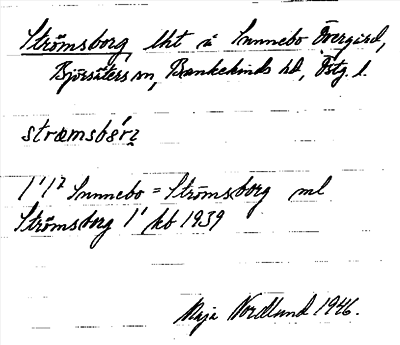 Strömsborg lht å Sunnebo Övergård,
Björsäters sn, Bankekinds hd, Östg. l.
strœmsbórʐ
1¹ 1² Sunnebo = Strömsborg ml
Strömsborg 1¹ kb 1939
Maja Nordlund 1946.